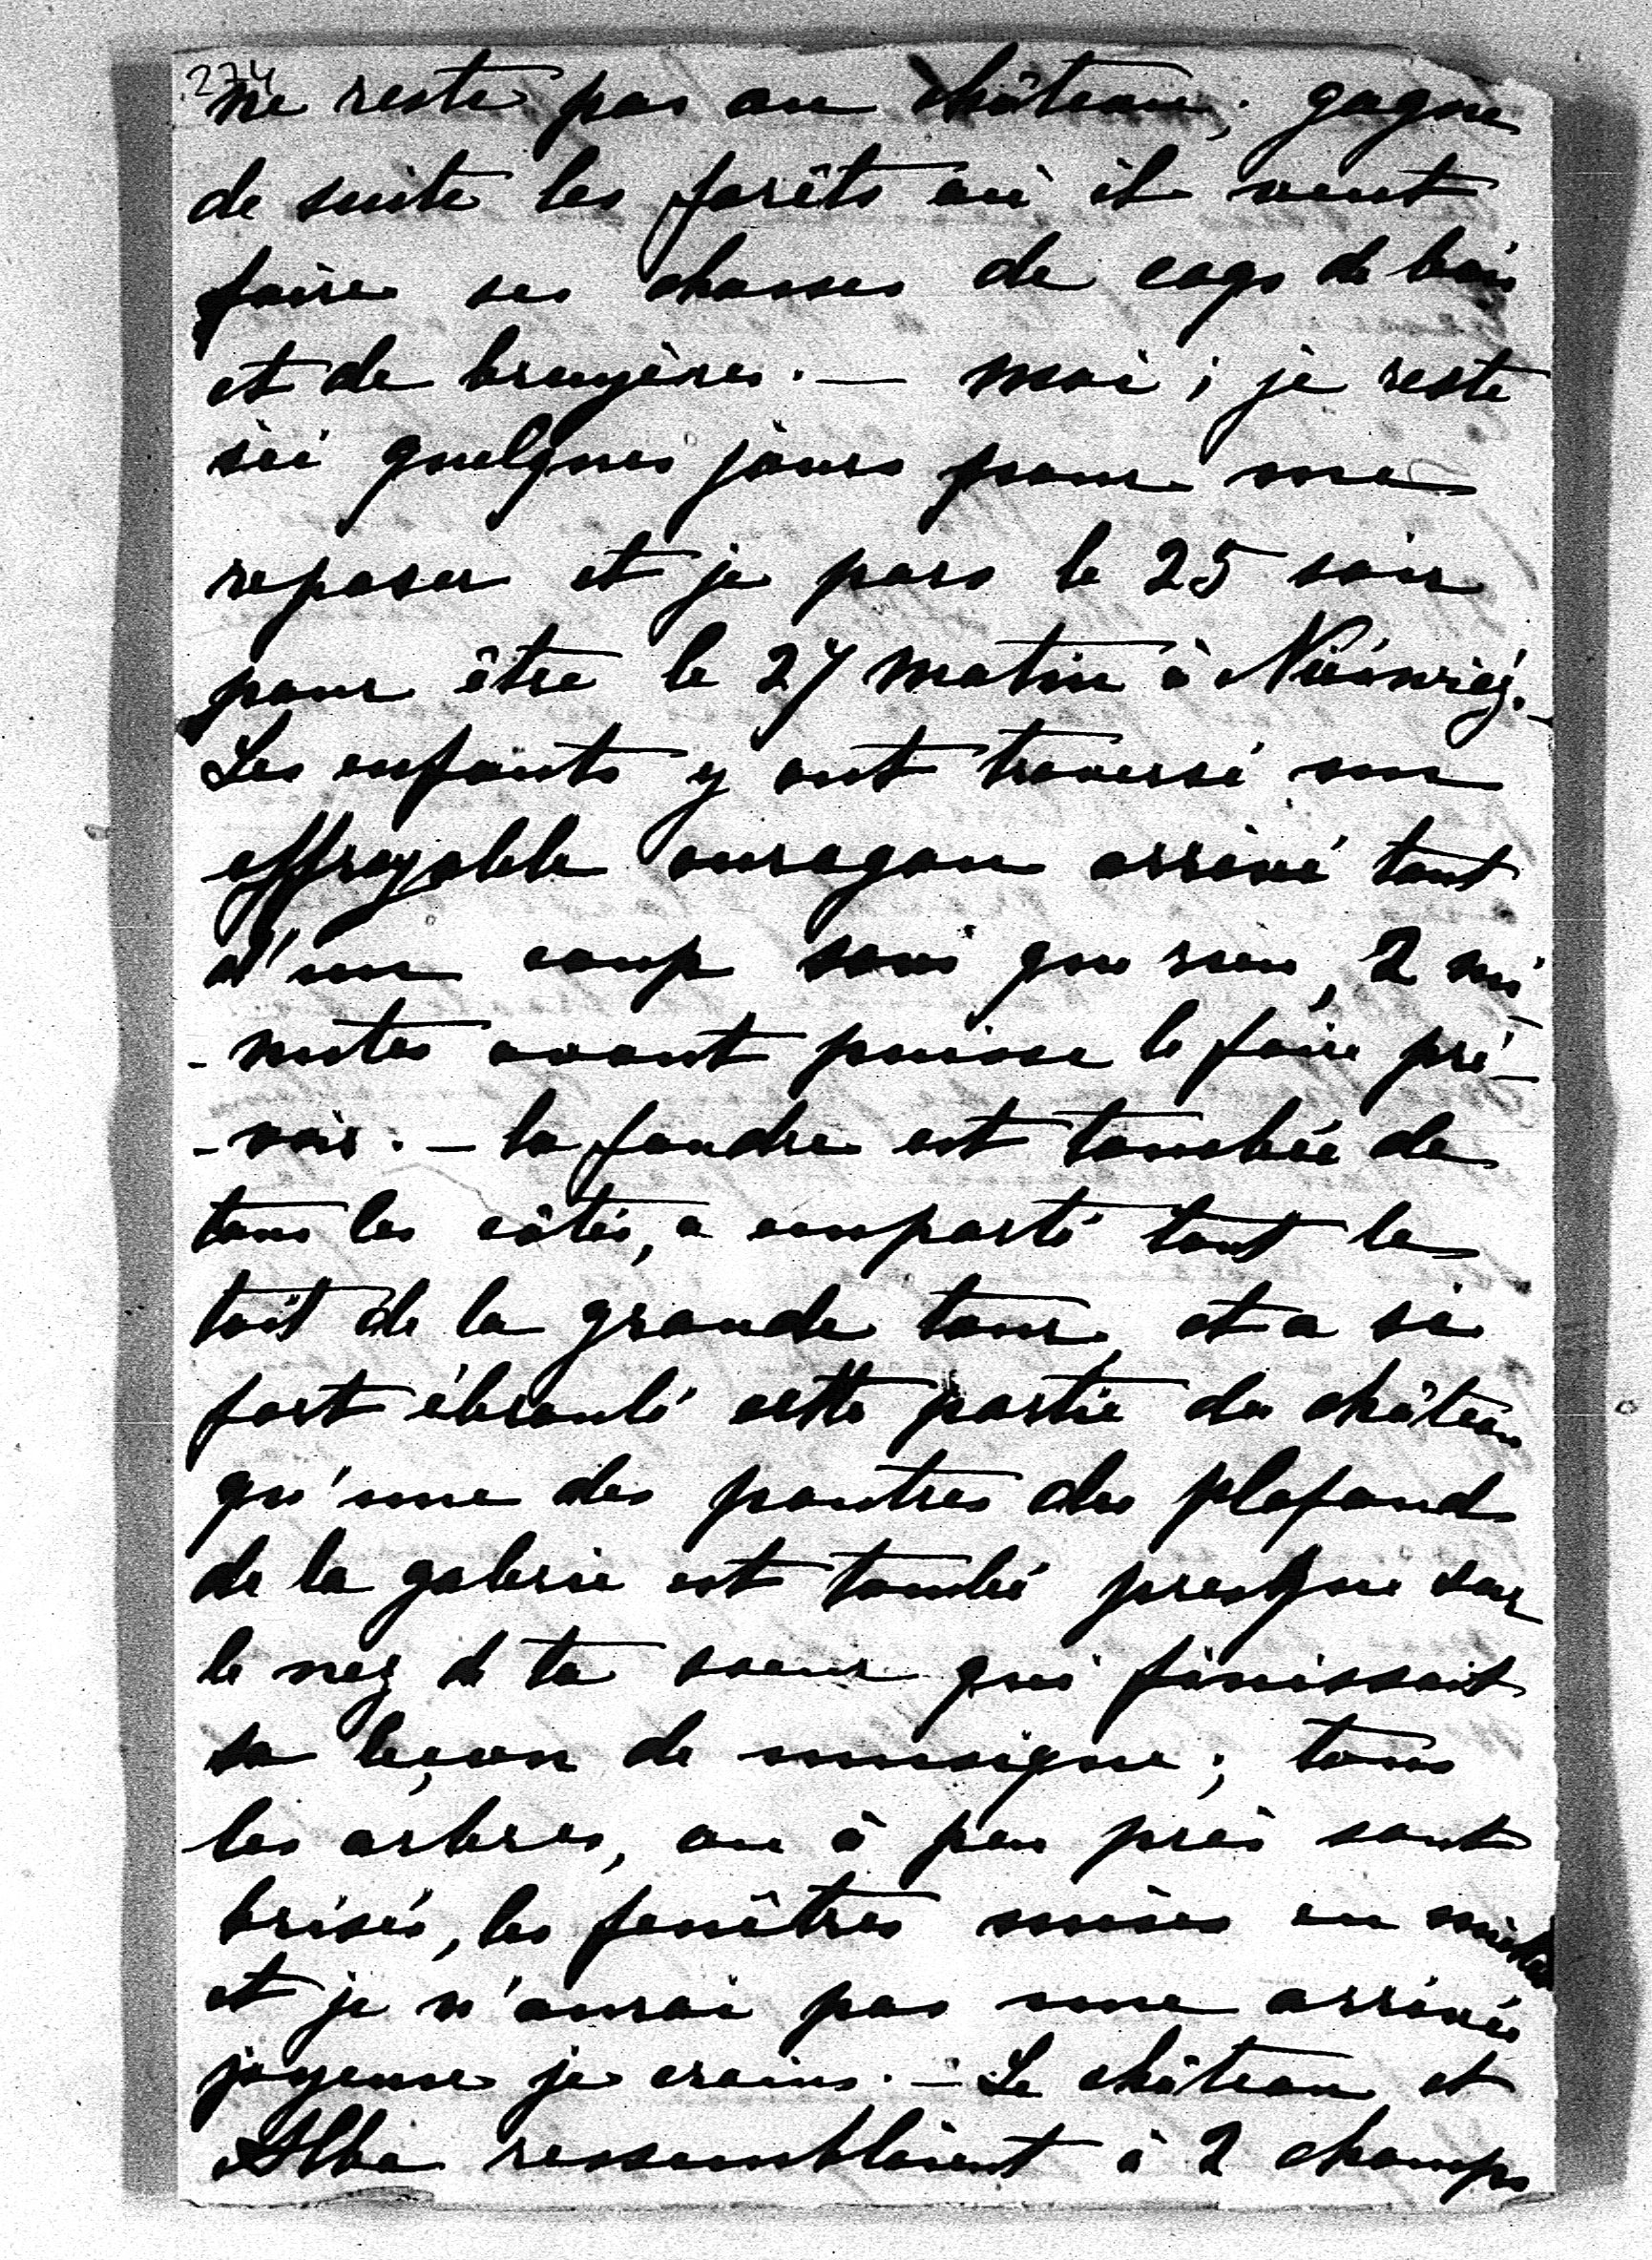 274
ne reste pas au château; gagne
de suite les forêts où il veut
faire ses chasses de coqs de bois
et de bruyères. — moi; je reste
ici quelques jours pour me
reposer et je pars le 25 soir
pour être le 27 matin à Niéswiéz. –
Les enfants y ont traversé un
effroyable ouragan arrivé tout
d'un coup sans que rien, 2 mi
- nutes avant puisse le faire pré-
- voir. – la foudre est tombée de
tous les côtés, a emporté tout le
toit de la grande tour, et a si
fort ébranlé cette partie du château
qu'une des poutres des plafonds
de la galerie est tombé presque sur
le nez de ta soeur qui finissait
sa leçon de musique; tous
les arbres, ou à peu près sont
brisés, les fenêtres mises en miettes
et je n'aurai pas une arrivée
joyeuse je crains. – Le château et
Alba ressemblaient à 2 champs